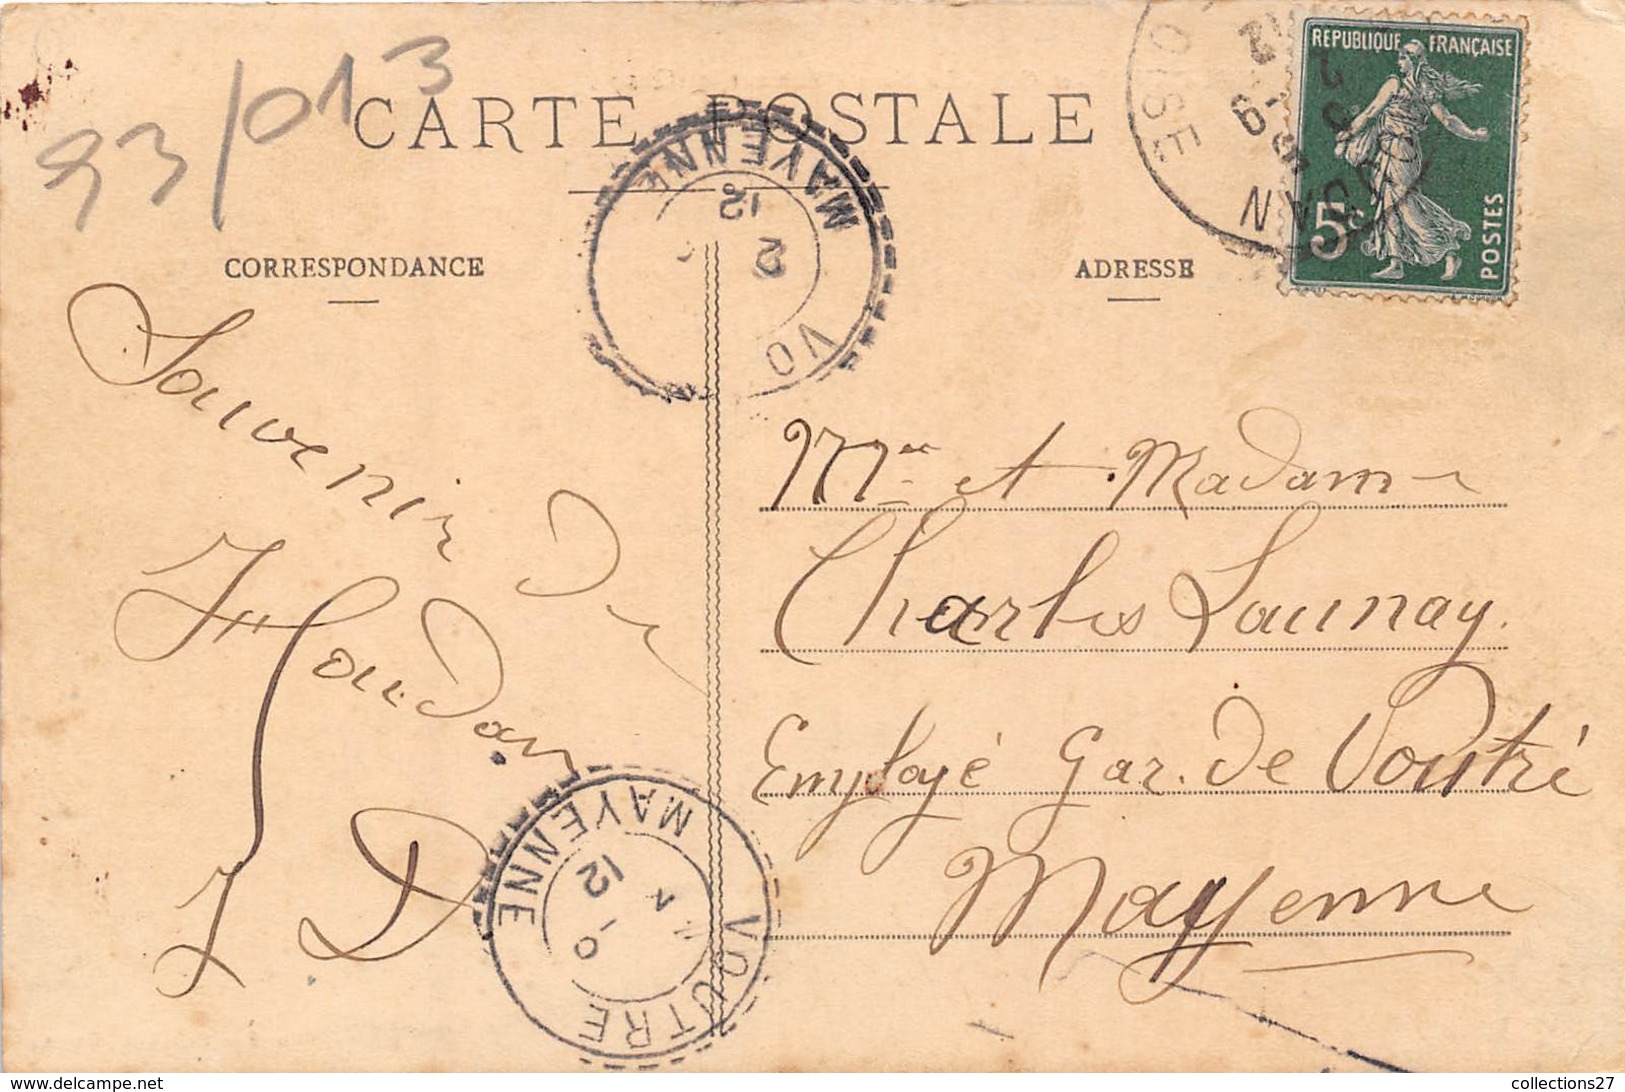 93/013
CARTE POSTALE
CORRESPONDANCE
ADRESSE
REPUBLIQUE FRANÇAISE
5c
POSTES
OISE
12
MAYENNE
12
2
VO
Souvenir
De
Houdan
D
Mr et Madame
Charles Launay.
Employé Gar. de Voutré
Mayenne
VOUTRE
MAYENNE
12
collections27